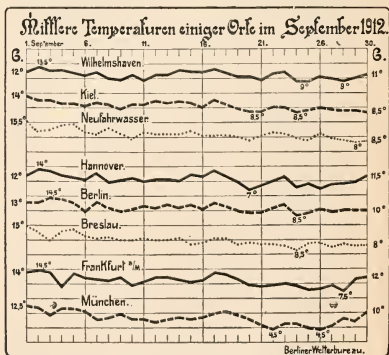 Mittlere Temperaturen einiger Orte im September 1912.
1. September 6. 11. 16. 21. 26. 30.
C. C.
13,5° Wilhelmshaven.
12° 11°
9° 9°
Kiel.
14° 8,5°
8,5° 8,5°
Neufahrwasser.
15,5° 8,5°
8°
14° Hannover.
12° 11,5°
7°
14,5° Berlin.
13° 10°
8,5°
Breslau.
15° 8°
8,5°
14,5° Frankfurt a/M.
14° 12°
7,5°
München.
12,5° 10°
4,5° 4,5°
Berliner Wetterbureau.